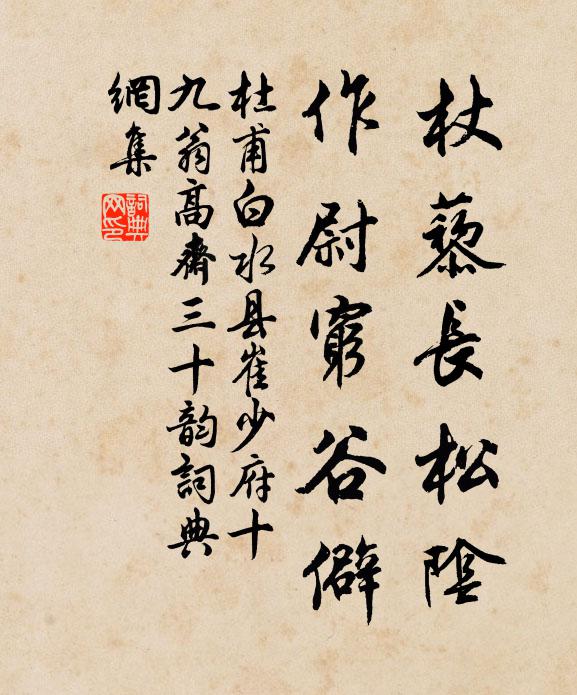 杖藜長松陰
作尉窮谷僻
杜甫白水县崔少府十
九翁高齋三十韵詞典
網集
詞典
网印